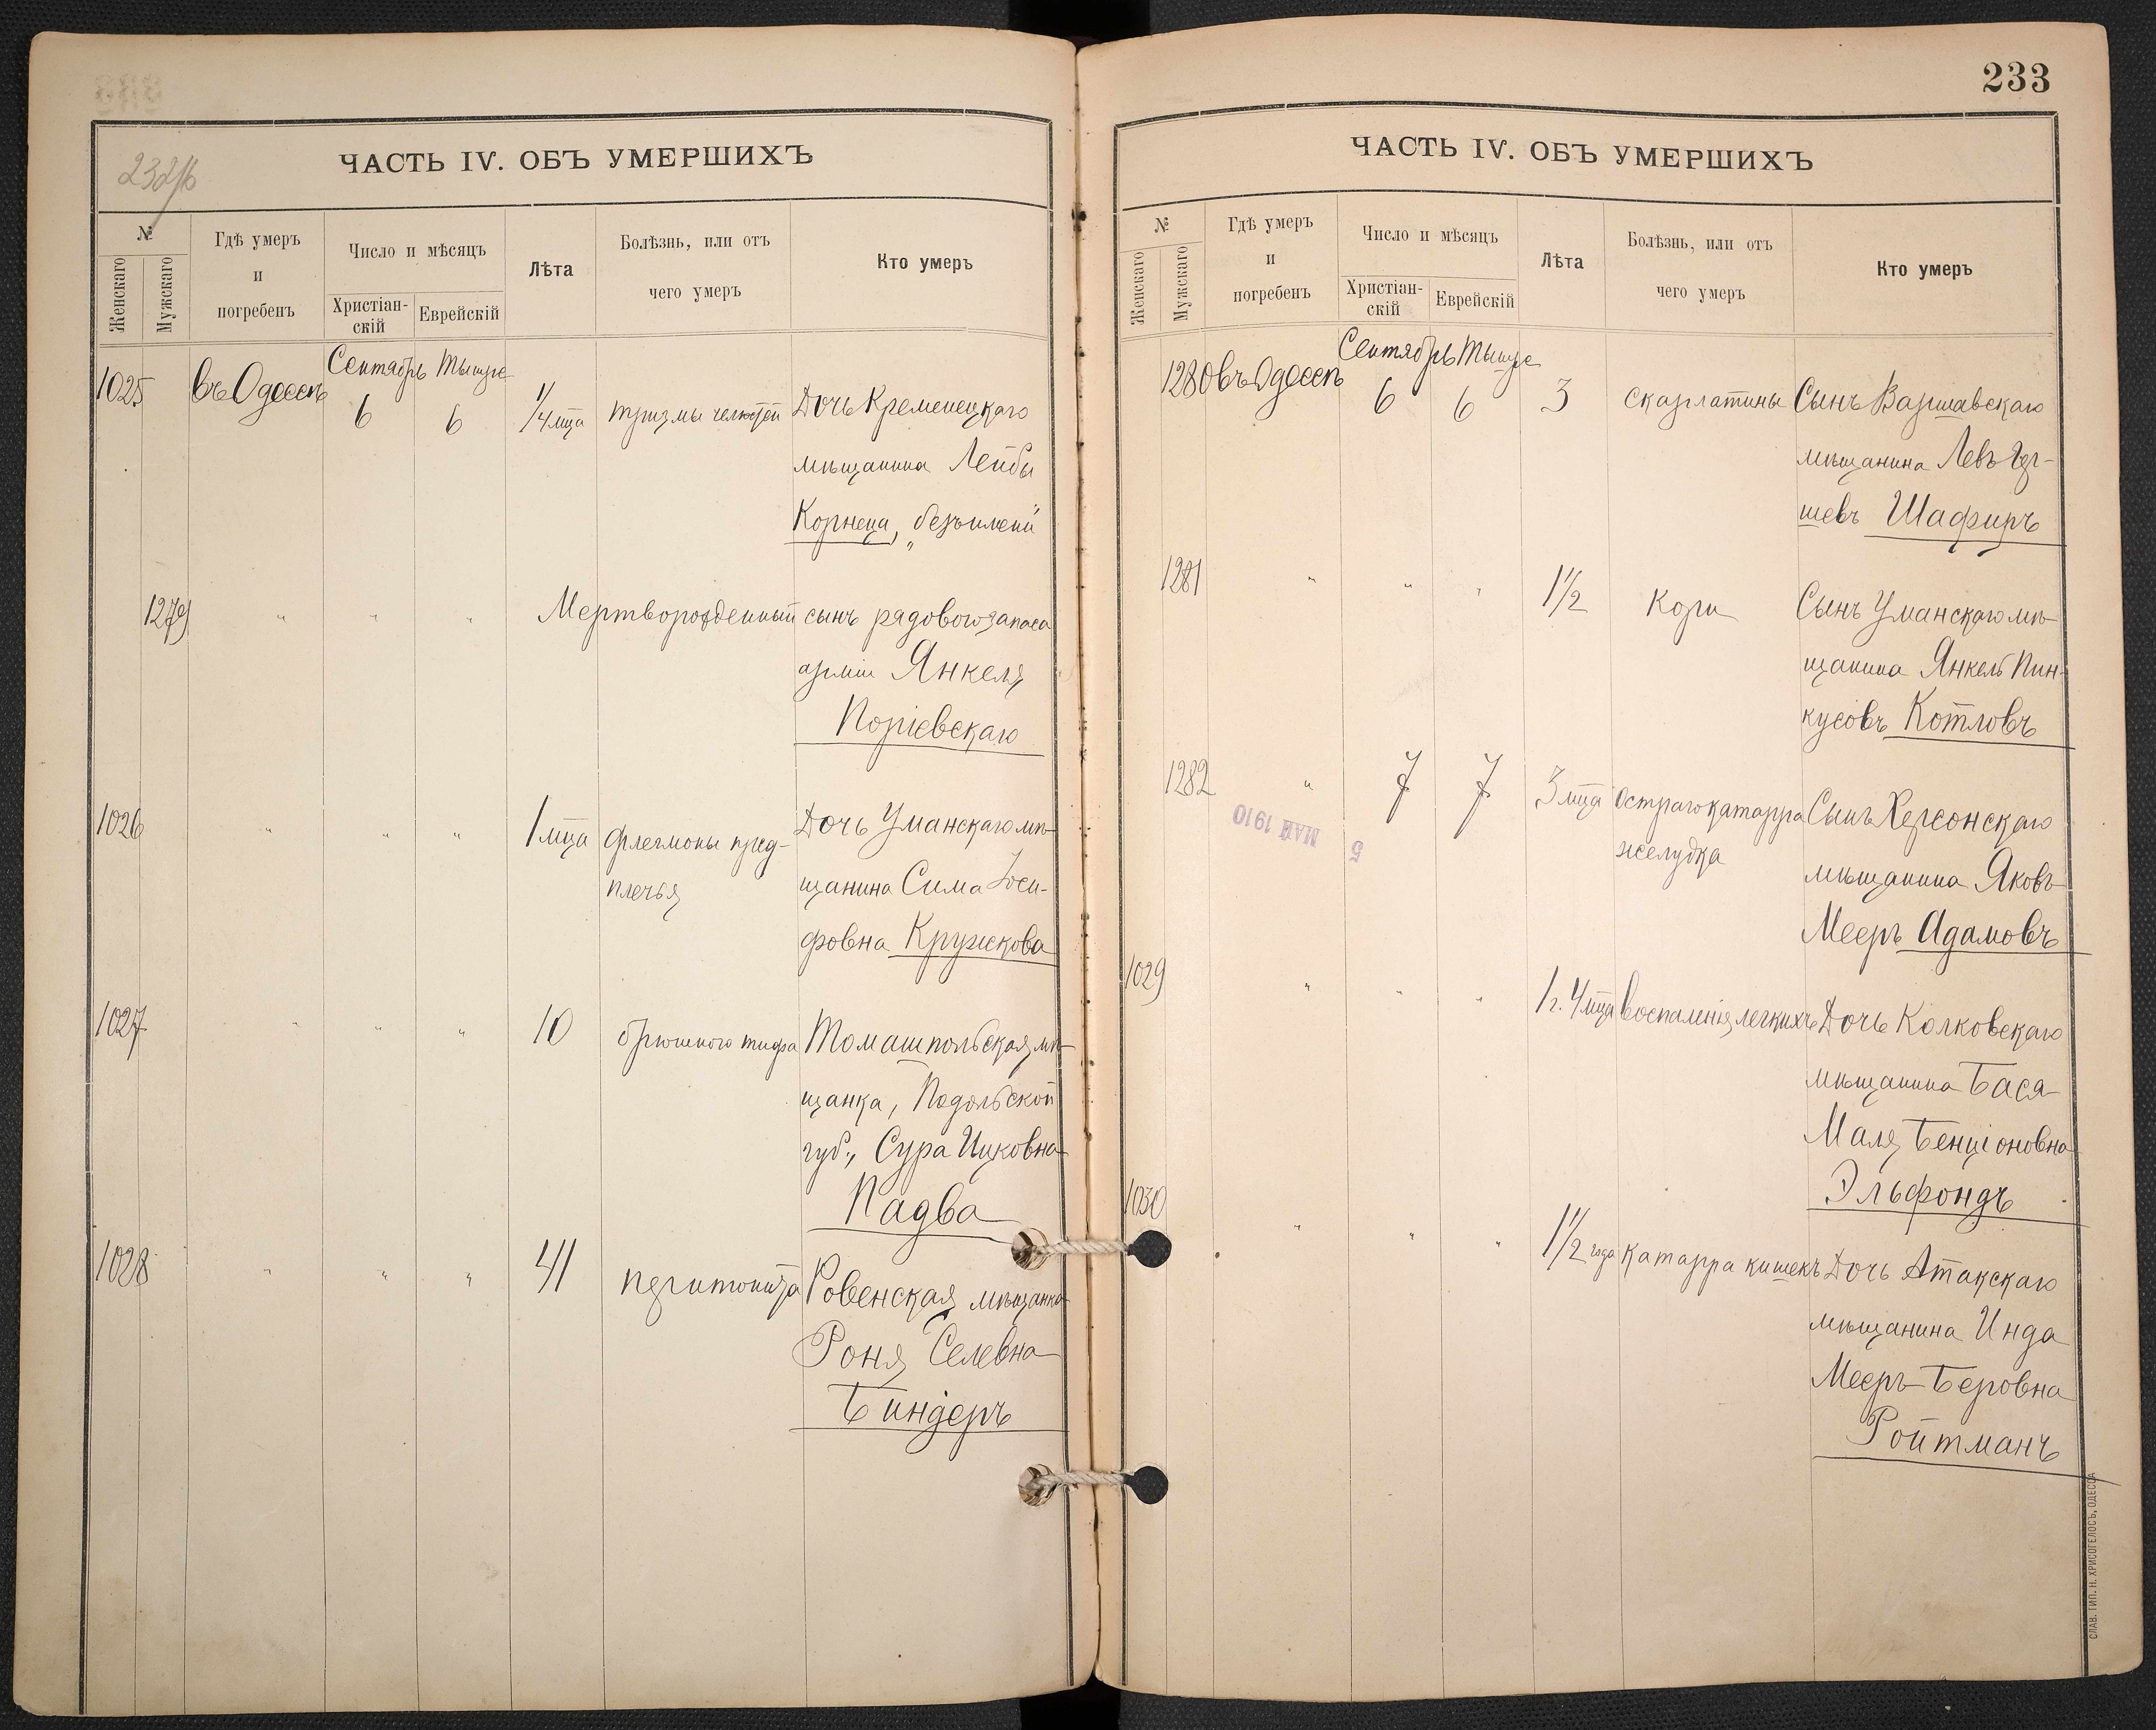 232/б
ЧАСТЬ IV. ОБЪ УМЕРШИХЪ
№
Женскаго
Мужскаго
Гдѣ умеръ
и
погребенъ
Число и мѣсяцъ
Христіан-
скій
Еврейскій
Лѣта
Болѣзнь, или отъ
чего умеръ
Кто умеръ
1025 въ Одессѣ Сентябрь Тышре
6 6 1/4 мца тризмы челюстей Дочь Кременецкаго
мѣщанина Лейбы
Корнеца, „безъ имени“
1279 " " " Мертворожденный сынъ рядового запаса
арміи Янкеля
Поргіевскаго
1026 " " " 1 мца флегмоны пред-
плечья
Дочь Уманскаго мѣ-
щанина Сима Іоси-
фовна Кружкова
1027 " " " 10 брюшного тифа Томашпольская мѣ-
щанка, Подольской
губ., Сура Ицковна
Падва
1028 " " " 41 перитонита Ровенская мѣщанка
Роня Селевна
Биндеръ
233
ЧАСТЬ IV. ОБЪ УМЕРШИХЪ
№
Женскаго
Мужскаго
Гдѣ умеръ
и
погребенъ
Число и мѣсяцъ
Христіан-
скій
Еврейскій
Лѣта
Болѣзнь, или отъ
чего умеръ
Кто умеръ
1280 въ Одессѣ Сентябрь Тышре
6 6 3 скарлатины Сынъ Варшавскаго
мѣщанина Левъ Гер-
шевъ Шафиръ
1281 " " " 1 1/2 Кори Сынъ Уманскаго мѣ-
щанина Янкель Пин-
кусовъ Котловъ
1282 " 7 7 3 мца Остраго катарра
желудка
Сынъ Херсонскаго
мѣщанина Яковъ
Мееръ Адамовъ
5 МАЙ 1910
1029 " " " 1 г. 4 мца воспаленія легкихъ Дочь Колковскаго
мѣщанина Бася
Маля Бенціоновна
Эльфондъ
1030 " " " 1 1/2 года катарра кишекъ Дочь Атакскаго
мѣщанина Инда
Мееръ-Беровна
Ройтманъ
СЛАВ. ТИП. Н. ХРИСОГЕЛОСЪ, ОДЕССА